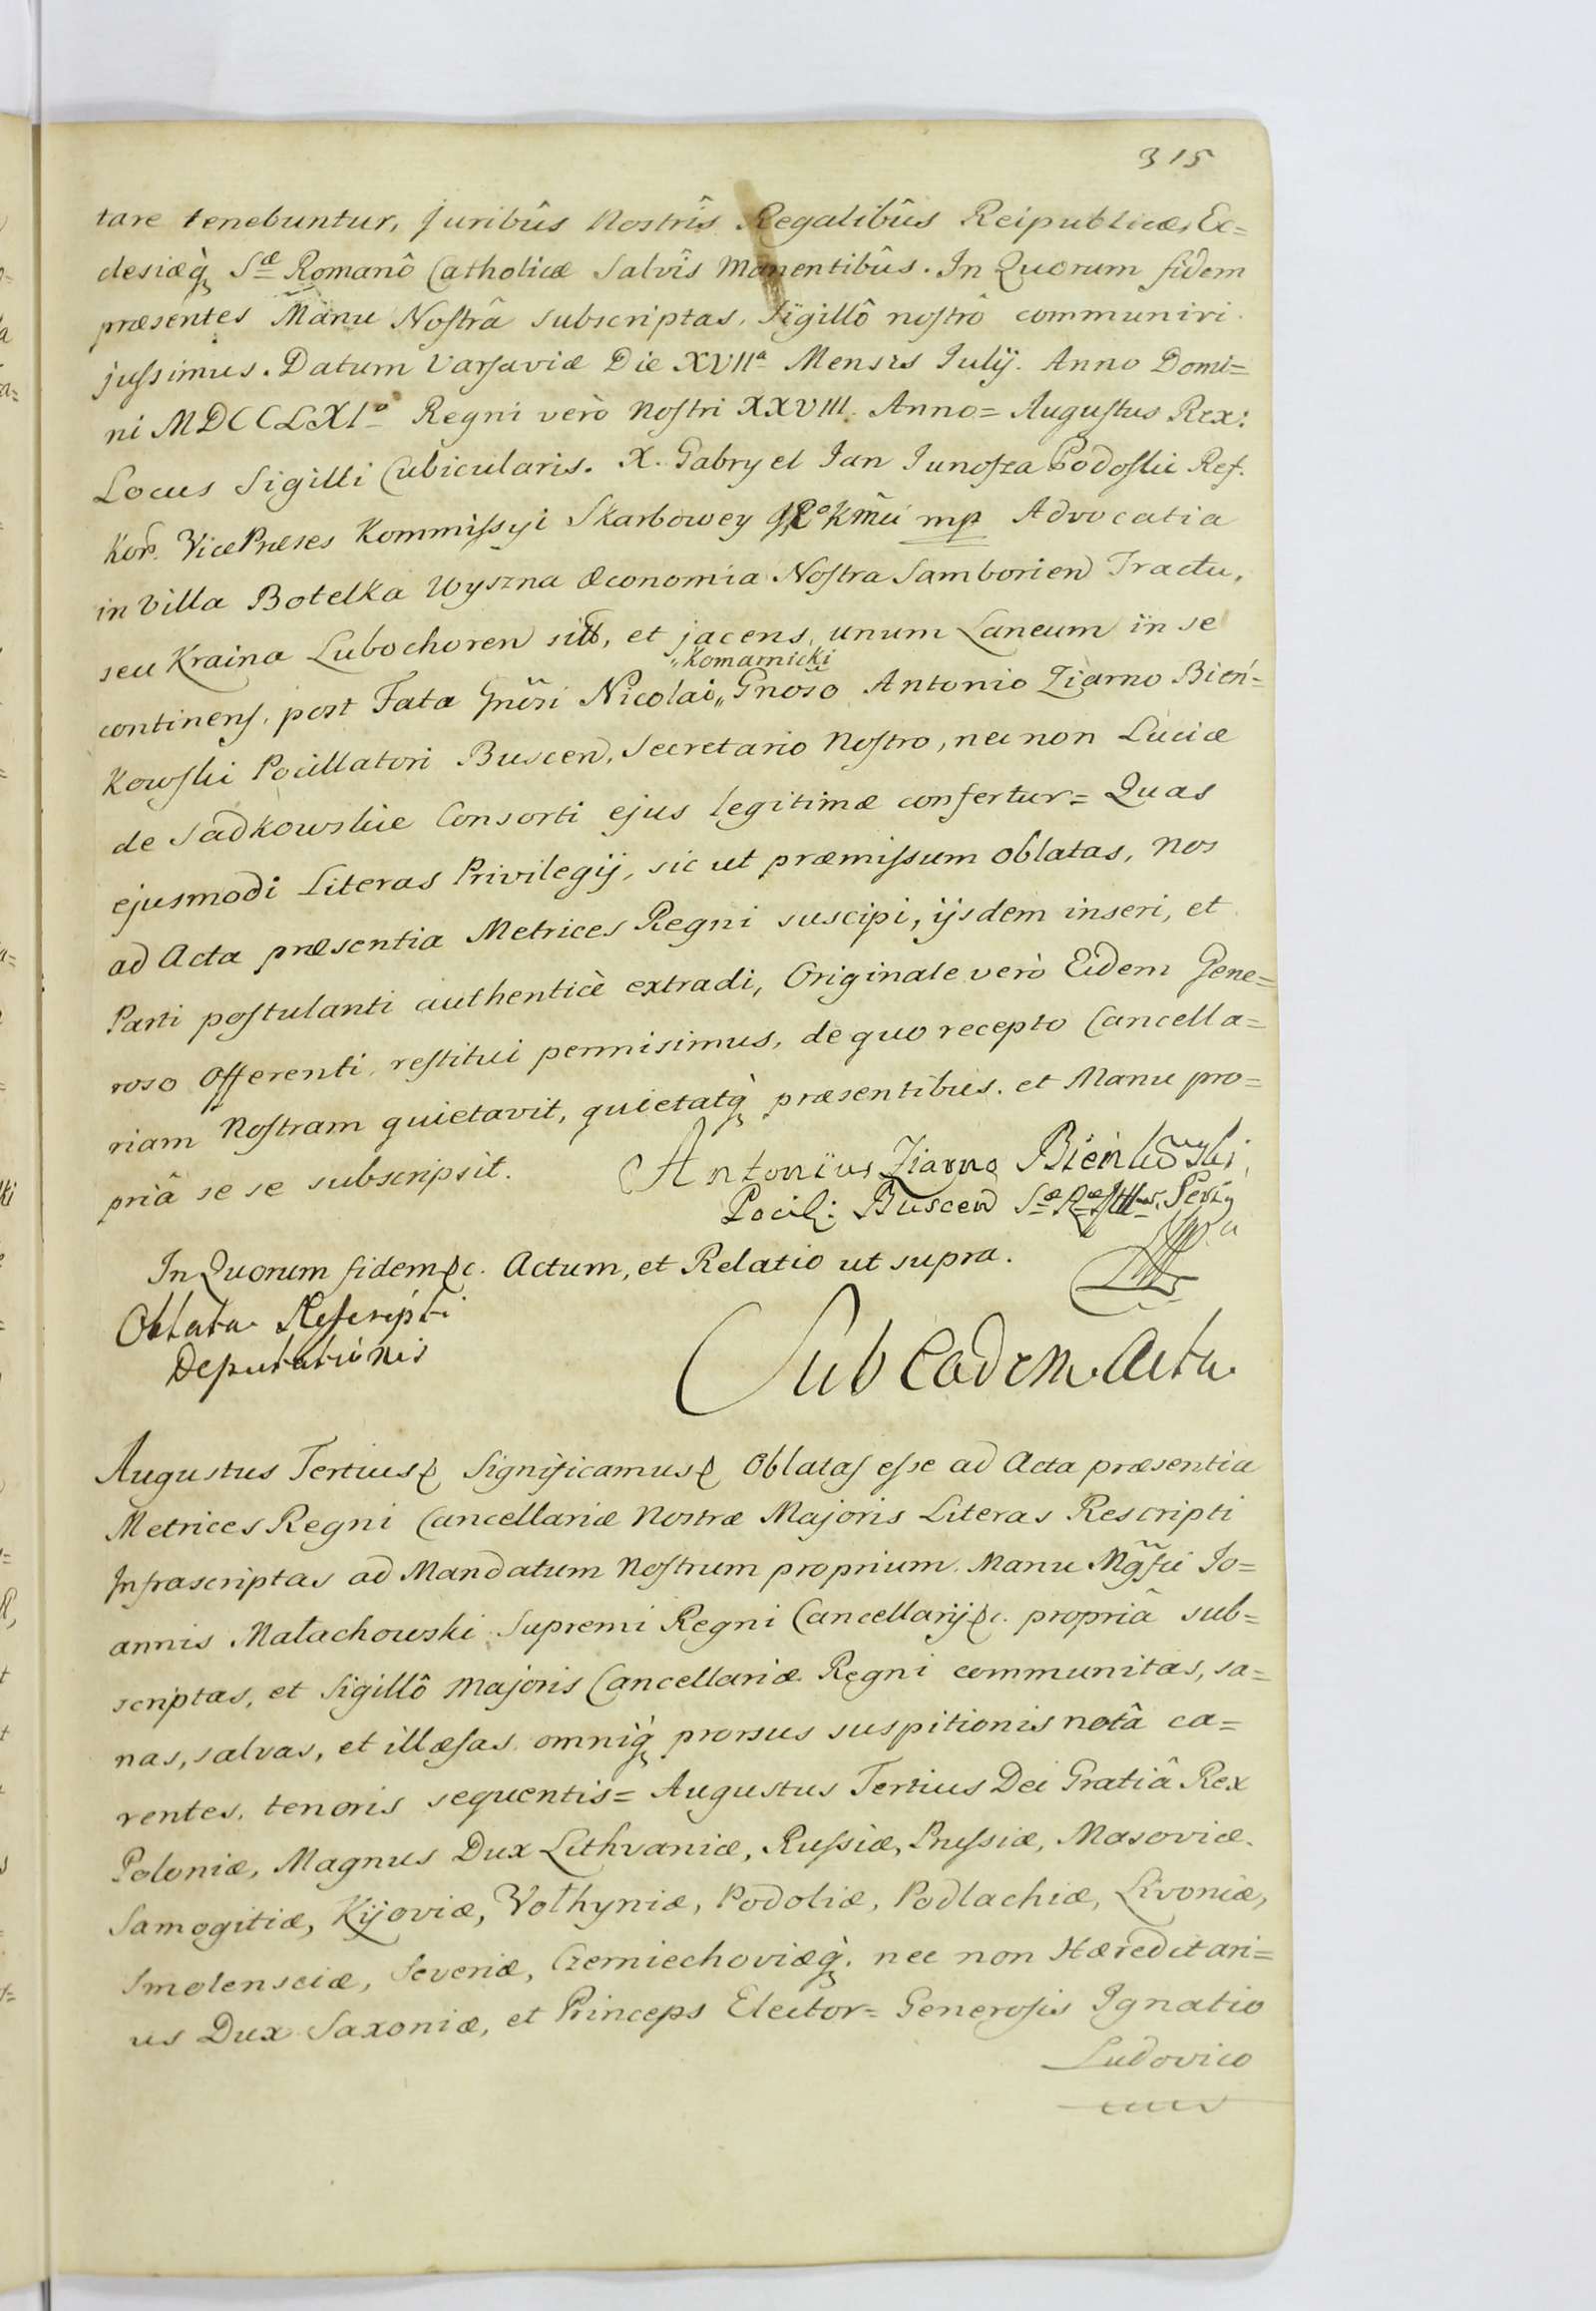 315
tare tenebuntur, Juribûs Nostrîs Regalibûs Reipublicæ, Ec=
clesiæq̀ Sæ Romanô Catholicæ Salvîs Manentibûs. In Quorum fidem
præsentes Manu Nostrâ subscriptas, Sigillô nostrô communiri
jussimus. Datum Varsaviæ Die XVIIa Mensis Julij. Anno Domi=
ni MDCCLXIo Regni verò Nostri XXVIII. Anno = Augustus Rex:
Locus Sigilli Cubicularis. X. Gabryel Jan Junosza Podoski Ref.
Kor. VicePræses Kommissyi Skarbowey mp Advocatia
in Villa Botelka Wyszna Œconomia Nostra Samborien Tractu,
seu Kraina Lubochoren sitt, et jacens, unum Laneum in se
„Komarnicki
continens, post Fata Gnosi Nicolai„ Gnoso Antonio Ziarno Bień=
kowski Pocillatori Buscen, Secretario Nostro, nec non Luciæ
de Sadkowskie Consorti ejus legitimæ confertur = Quas
ejusmodi Literas Privilegij, sic ut præmissum oblatas, Nos
ad Acta præsentia Metrices Regni suscipi, ijsdem inseri, et
Parti postulanti authenticè extradi, Originale verò Eidem Gene=
roso Offerenti, restitui permisimus, de quo recepto Cancella=
riam Nostram quietavit, quietatq̀ præsentibus. et Manu pro=
priâ se se subscripsit.
Antonius Ziarno Bieńkowski
Pocil: Buscen
In Quorum fidem &c. Actum, et Relatio ut supra.
Oblata Rescripti
Deputationis
Sub Eadem Actu
Augustus Tertius & Significamus & Oblatas esse ad Acta præsentia
Metrices Regni Cancellariæ Nostræ Majoris Literas Rescripti
Infrascriptas ad Mandatum Nostrum proprium, Manu Mgfci Jo=
annis Małachowski Supremi Regni Cancellarij &c. propriâ sub=
scriptas, et Sigillô Majoris Cancellariæ Regni communitas, sa=
nas, salvas, et illæsas, omniq̀ prorsus suspitionis notâ ca=
rentes, tenoris sequentis = Augustus Tertius Dei Gratiâ Rex
Poloniæ, Magnus Dux Lithvaniæ, Russiæ, Prussiæ, Masoviæ,
Samogitiæ, Kijoviæ, Volhyniæ, Podoliæ, Podlachiæ, Livoniæ,
Smolensciæ, Severiæ, Czerniechoviæq̀, nec non Hæreditari=
us Dux Saxoniæ, et Princeps Elector = Generosis Ignatio
Ludovico